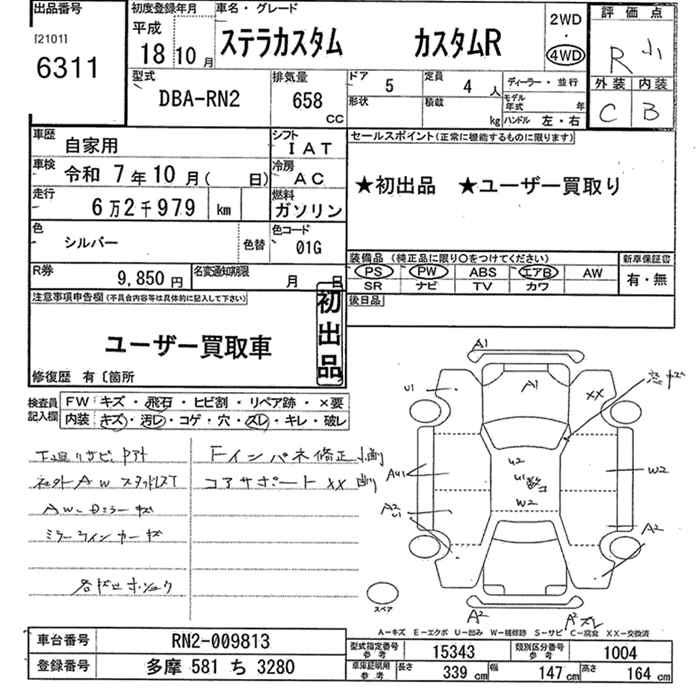 出品番号
[2101]
6311
初度登録年月
平成
18 10 月
車名・グレード
ステラカスタム カスタムR
2WD
・
4WD
評価点
R 小
外装 内装
C B
型式
DBA-RN2
排気量
658
cc
ドア
5
定員
4 人
形状
積載
kg
ディーラー・並行
モデル年式 年
ハンドル 左・右
車歴
自家用
シフト
I A T
車検
令和 7 年 10 月( 日)
冷房
A C
走行
6 万 2 千 979 km
燃料
ガソリン
色
シルバー
色替
色コード
01G
R券
9,850 円
名変通知期限
月 日
セールスポイント(正常に機能するものに限ります)
★初出品 ★ユーザー買取り
装備品 (純正品に限り○をつけてください)
PS PW ABS エアB AW
SR ナビ TV カワ
新車保証書
有・無
後日品
注意事項申告欄(不具合内容等は具体的に記入して下さい)
初出品
ユーザー買取車
修復歴 有〔箇所
検査員記入欄
FW キズ・飛石・ヒビ割・リペア跡・×要
内装 キズ・汚レ・コゲ・穴・スレ・キレ・破レ
下廻リサビ
社外AWスタッドレス
ミラーウインカーキズ
Fインパネ修正
コアサポート XX
A1
U1
A1
XX
U2
U1
W2
W2
A2
U1
A2
A2
スペア
A－キズ E－エクボ U－凹み W－補修跡 S－サビ C－腐食 XX－交換済
車台番号 RN2-009813
登録番号 多摩 581 ち 3280
型式指定番号 参考 15343
類別区分番号 参考 1004
車庫証明用 参考
長さ 339 cm
幅 147 cm
高さ 164 cm